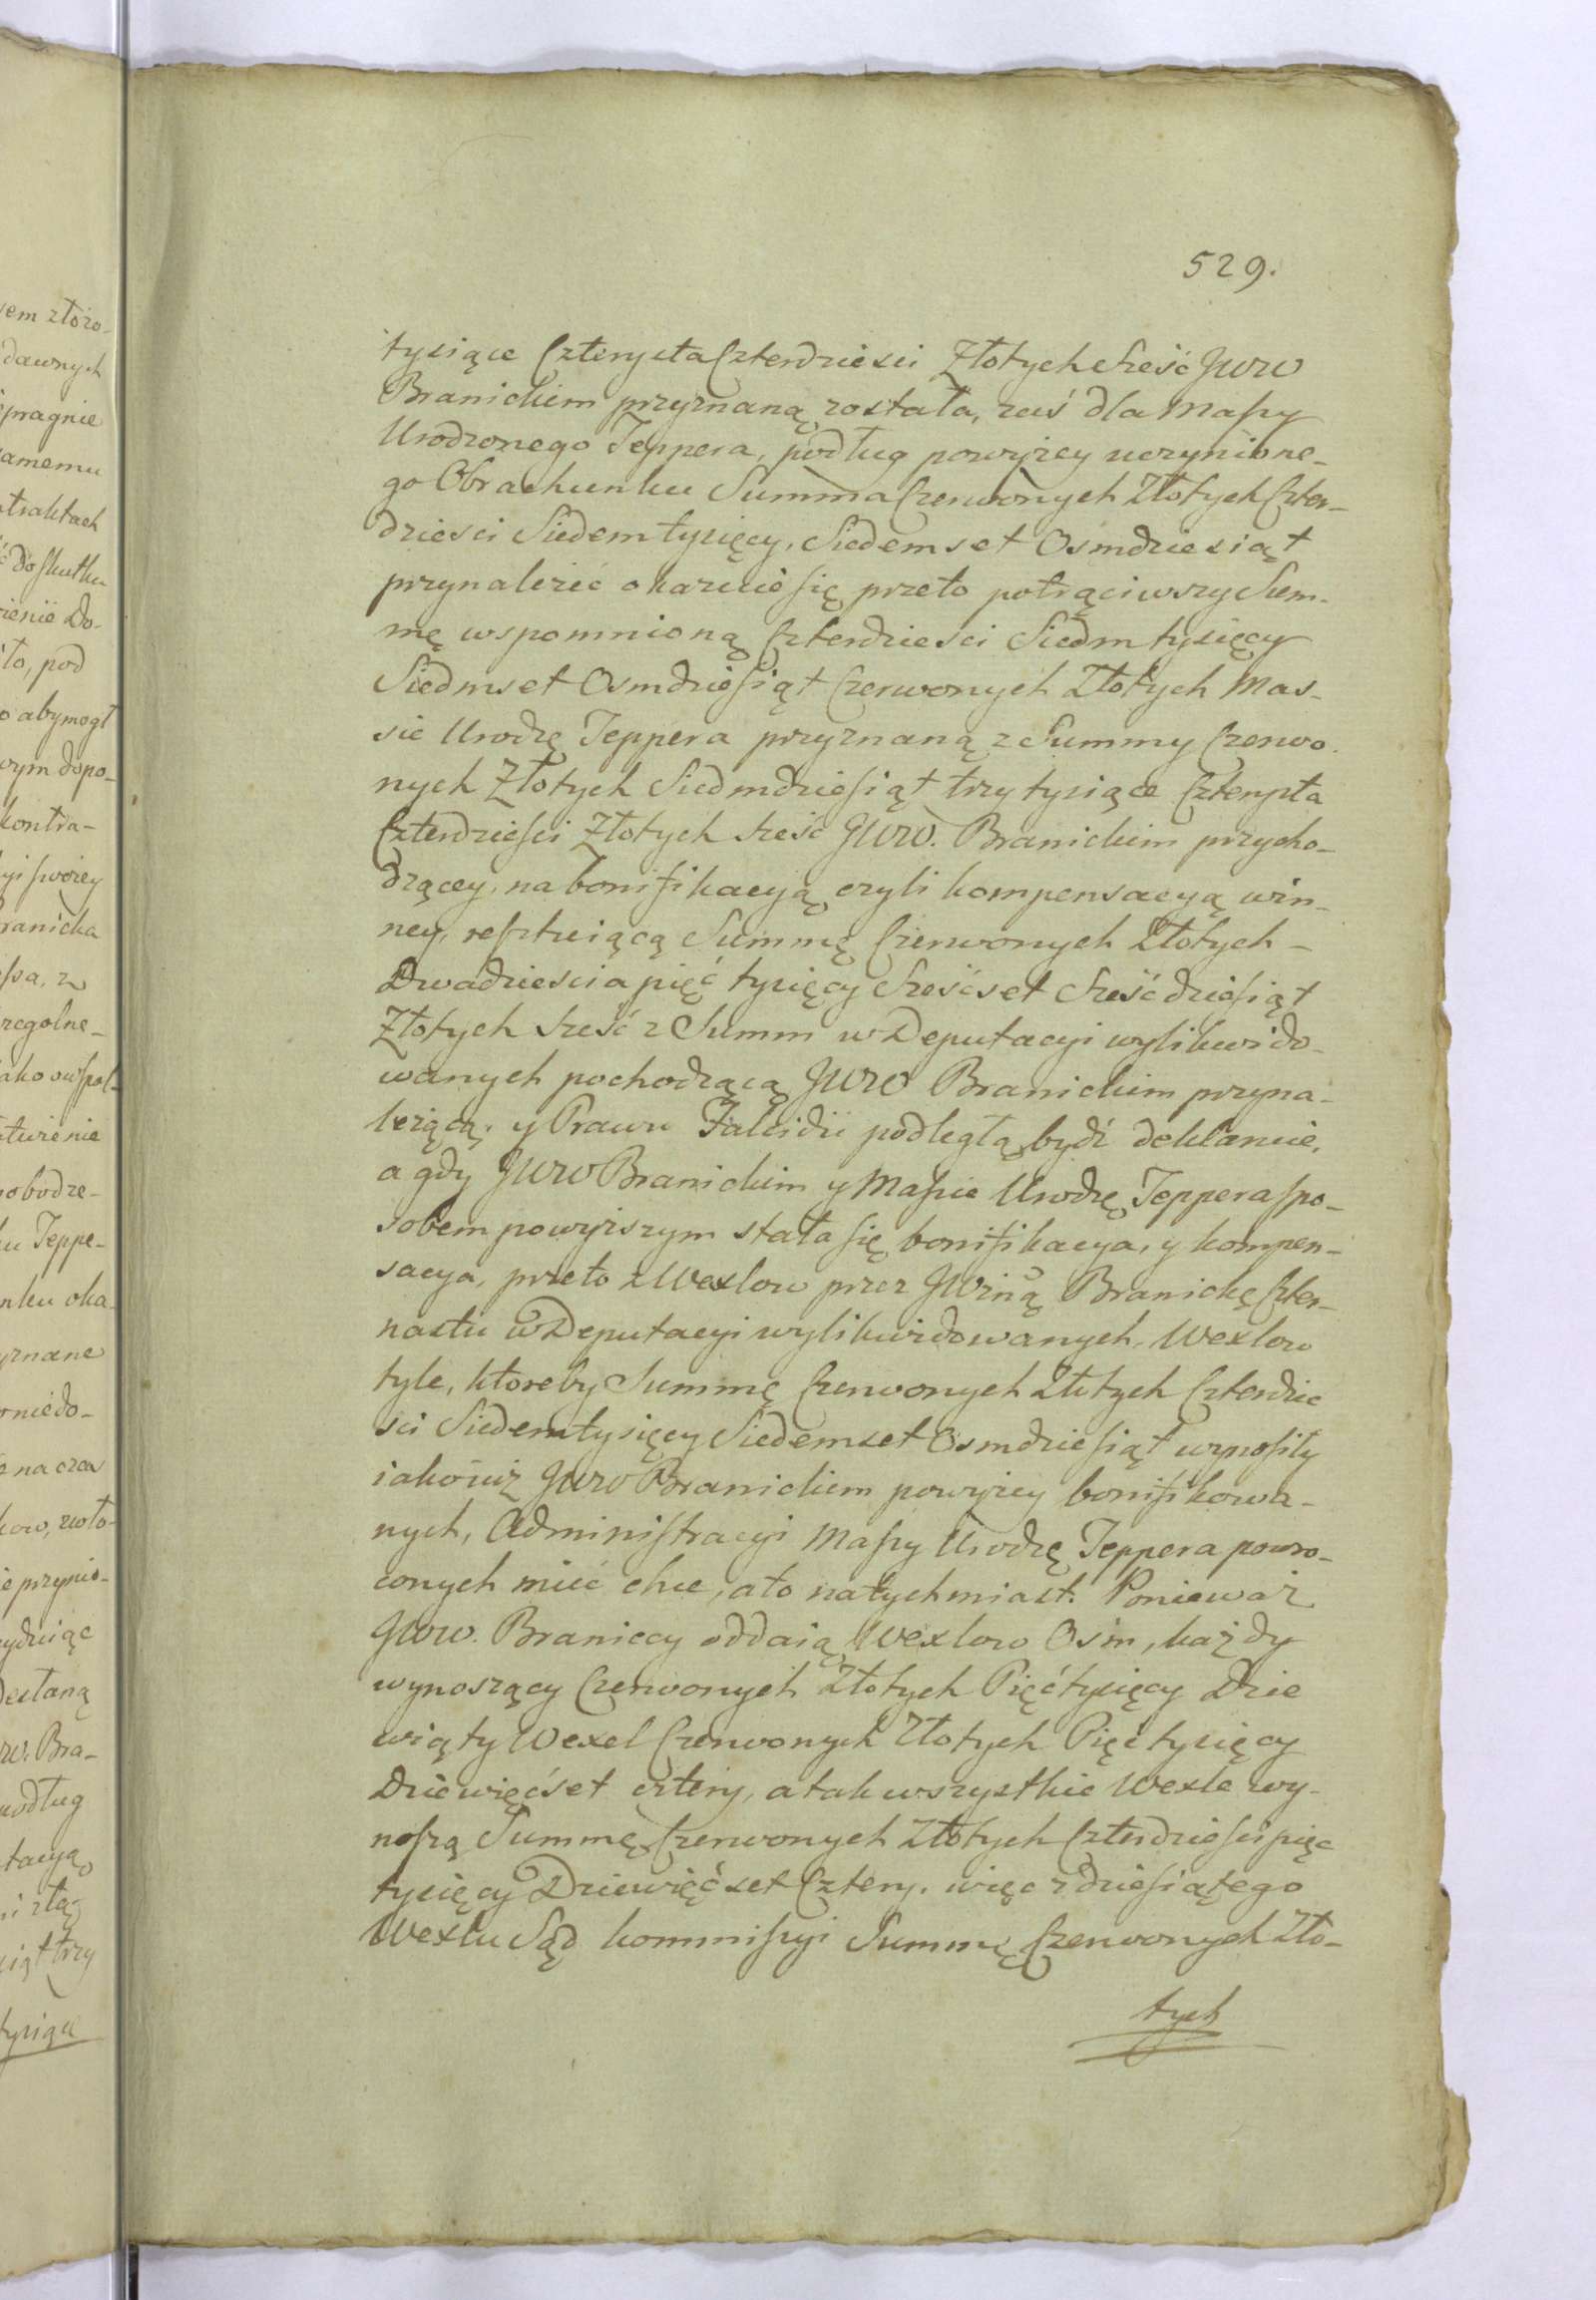 529.
tysiące Czterysta Czterdziesci Złotych sześć JWW
Branickim przyznaną została, zaś dla Massy
Urodzonego Teppera, podług powyżey uczynione-
go Obrachunku Summa Czerwonych Złotych Czter-
dziesci Siedem tysięcy, Siedemset Osmdziesiąt
przynależeć okazuie się przeto potrąciwszy Sum-
mę wspomnioną Czterdziesci Siedm tysięcy
Siedmset Osmdziesiąt Czerwonych Złotych Mas-
sie Urodzę Teppera przyznaną z Summy Czerwo-
nych Złotych Siedmdziesiąt trzy tysiące Czterysta
Czterdziesci Złotych sześć JWW. Branickim przycho-
dzącey, na bonifikacyą czyli kompensacyą win-
ney, resztuiącą Summę Czerwonych Złotych -
Dwadziescia pięć tysięcy sześćset sześćdziesiąt
Złotych sześć z Summ w Deputacyi wylikwido-
wanych pochodzącą JWW Branickim przyna-
leżącą, y Prawu Falcidii podległą bydź deklaruie,
a gdy JWW Branickim y Massie Urodzę Teppera spo-
sobem powyższym stała się bonifikacya, y kompen-
sacya, przeto z Wexlow przez JWżną Branickę Czter-
nastu w Deputacyi wylikwidowanych, Wexlow
tyle, ktoreby Summę Czerwonych Złotych Czterdzie
sci Siedem tysięcy Siedemset Osmdziesiąt wynosiły
iako iuż JWW Branickim powyżey bonifikowa-
nych, Administracyi Massy Urodzę Teppera powro-
conych mieć chce, a to natychmiast. Ponieważ
JWW. Braniccy oddaią Wexlow Osm, każdy
wynoszący Czerwonych Złotych Pięć tysięcy Dzie
wiąty Wexel Czerwonych Złotych Pięć tysięcy
Dziewięćset cztery, a tak wszystkie Wexle wy-
noszą Summę Czerwonych Złotych Czterdziesci pięć
tysięcy Dziewięćset Cztery. więc z dziesiątego
Wexlu Sąd kommissyi Summę Czerwonych Zło-
tych